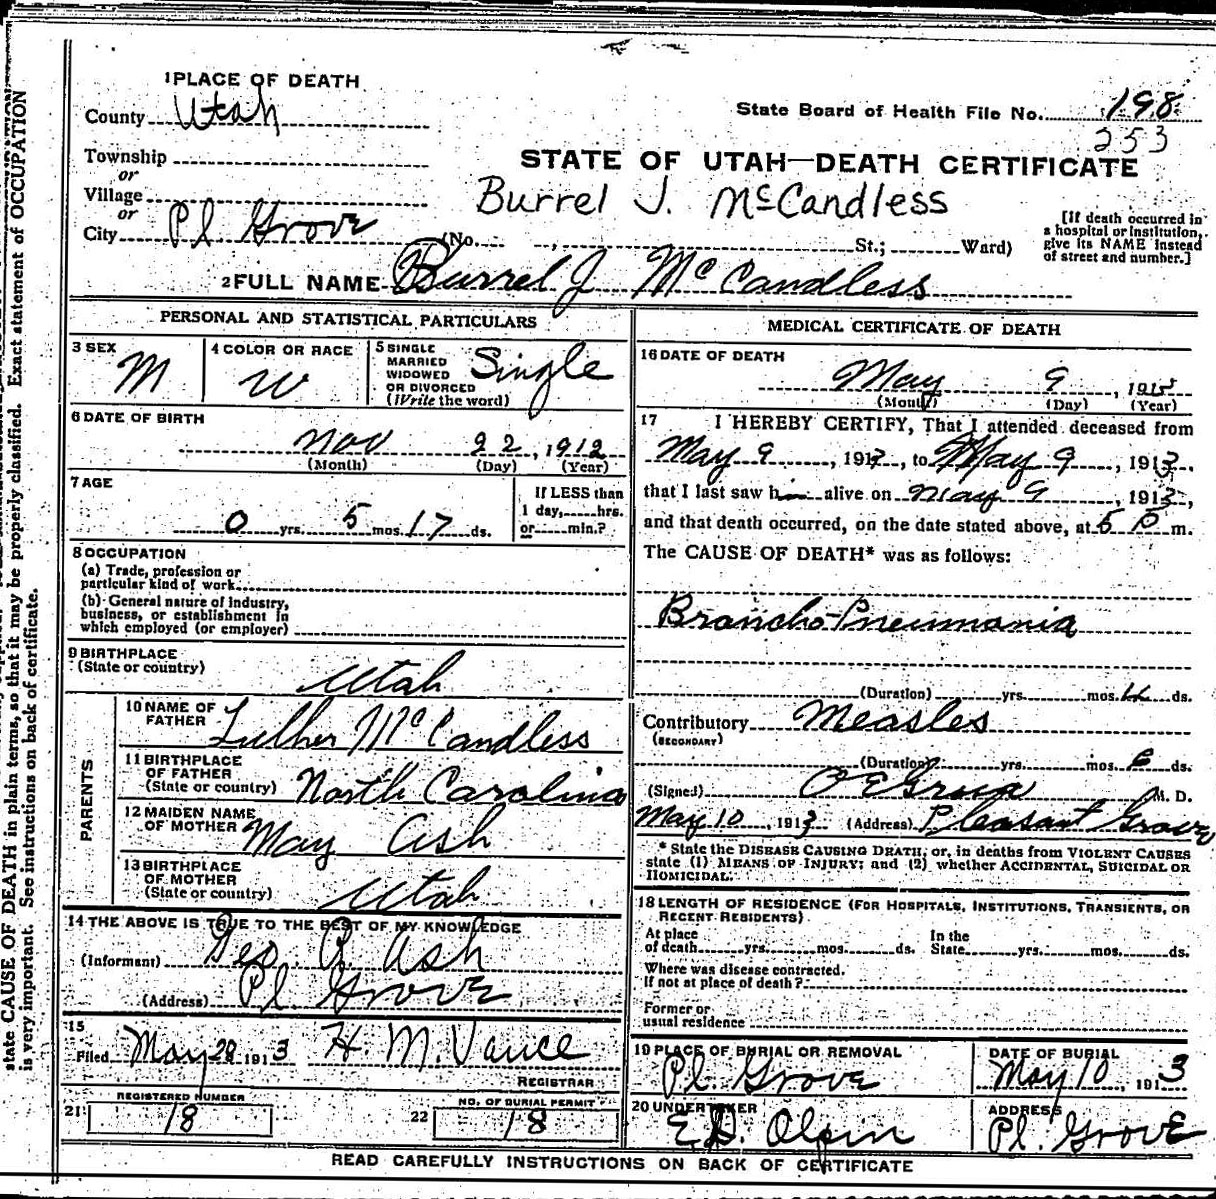 1 PLACE OF DEATH
County Utah
State Board of Health File No. 198
253
Township
or
Village
or
City Pl Grove (No. , St.; Ward)
STATE OF UTAH—DEATH CERTIFICATE
Burrel J. McCandless
[If death occurred in
a hospital or institution,
give its NAME instead
of street and number.]
2 FULL NAME Burrel J McCandless
PERSONAL AND STATISTICAL PARTICULARS
3 SEX M
4 COLOR OR RACE W
5 SINGLE
MARRIED
WIDOWED
OR DIVORCED
(Write the word)
Single
6 DATE OF BIRTH
Nov 22, 1912
(Month) (Day) (Year)
7 AGE
0 yrs. 5 mos. 17 ds.
If LESS than
1 day, hrs.
or min.?
8 OCCUPATION
(a) Trade, profession or
particular kind of work
(b) General nature of industry,
business, or establishment in
which employed (or employer)
9 BIRTHPLACE
(State or country)
Utah
PARENTS
10 NAME OF
FATHER
Luther McCandless
11 BIRTHPLACE
OF FATHER
(State or country)
North Carolina
12 MAIDEN NAME
OF MOTHER
May Ash
13 BIRTHPLACE
OF MOTHER
(State or country)
Utah
14 THE ABOVE IS TRUE TO THE BEST OF MY KNOWLEDGE
(Informant) Geo. P. Ash
(Address) Pl Grove
15
Filed May 28 1913 H. M. Vance
REGISTRAR
REGISTERED NUMBER
21 18
NO. OF BURIAL PERMIT
22 18
MEDICAL CERTIFICATE OF DEATH
16 DATE OF DEATH
May 9, 1913
(Month) (Day) (Year)
17 I HEREBY CERTIFY, That I attended deceased from
May 9, 1913, to May 9, 1913,
that I last saw him alive on May 9, 1913,
and that death occurred, on the date stated above, at 5 P m.
The CAUSE OF DEATH* was as follows:
Broncho-Pneumonia
(Duration) yrs. mos. 4 ds.
Contributory Measles
(SECONDARY)
(Duration) yrs. mos. 6 ds.
(Signed) M. D.
May 10, 1913 (Address) Pleasant Grove
* State the DISEASE CAUSING DEATH, or, in deaths from VIOLENT CAUSES
state (1) MEANS OF INJURY; and (2) whether ACCIDENTAL, SUICIDAL OR
HOMICIDAL.
18 LENGTH OF RESIDENCE (FOR HOSPITALS, INSTITUTIONS, TRANSIENTS, OR
RECENT RESIDENTS)
At place
of death yrs. mos. ds.
In the
State yrs. mos. ds.
Where was disease contracted,
if not at place of death?
Former or
usual residence
19 PLACE OF BURIAL OR REMOVAL
Pl. Grove
DATE OF BURIAL
May 10, 1913
20 UNDERTAKER
E. D. Olpin
ADDRESS
Pl. Grove
READ CAREFULLY INSTRUCTIONS ON BACK OF CERTIFICATE
state CAUSE OF DEATH in plain terms, so that it may be properly classified. Exact statement of OCCUPATION
is very important. See instructions on back of certificate.